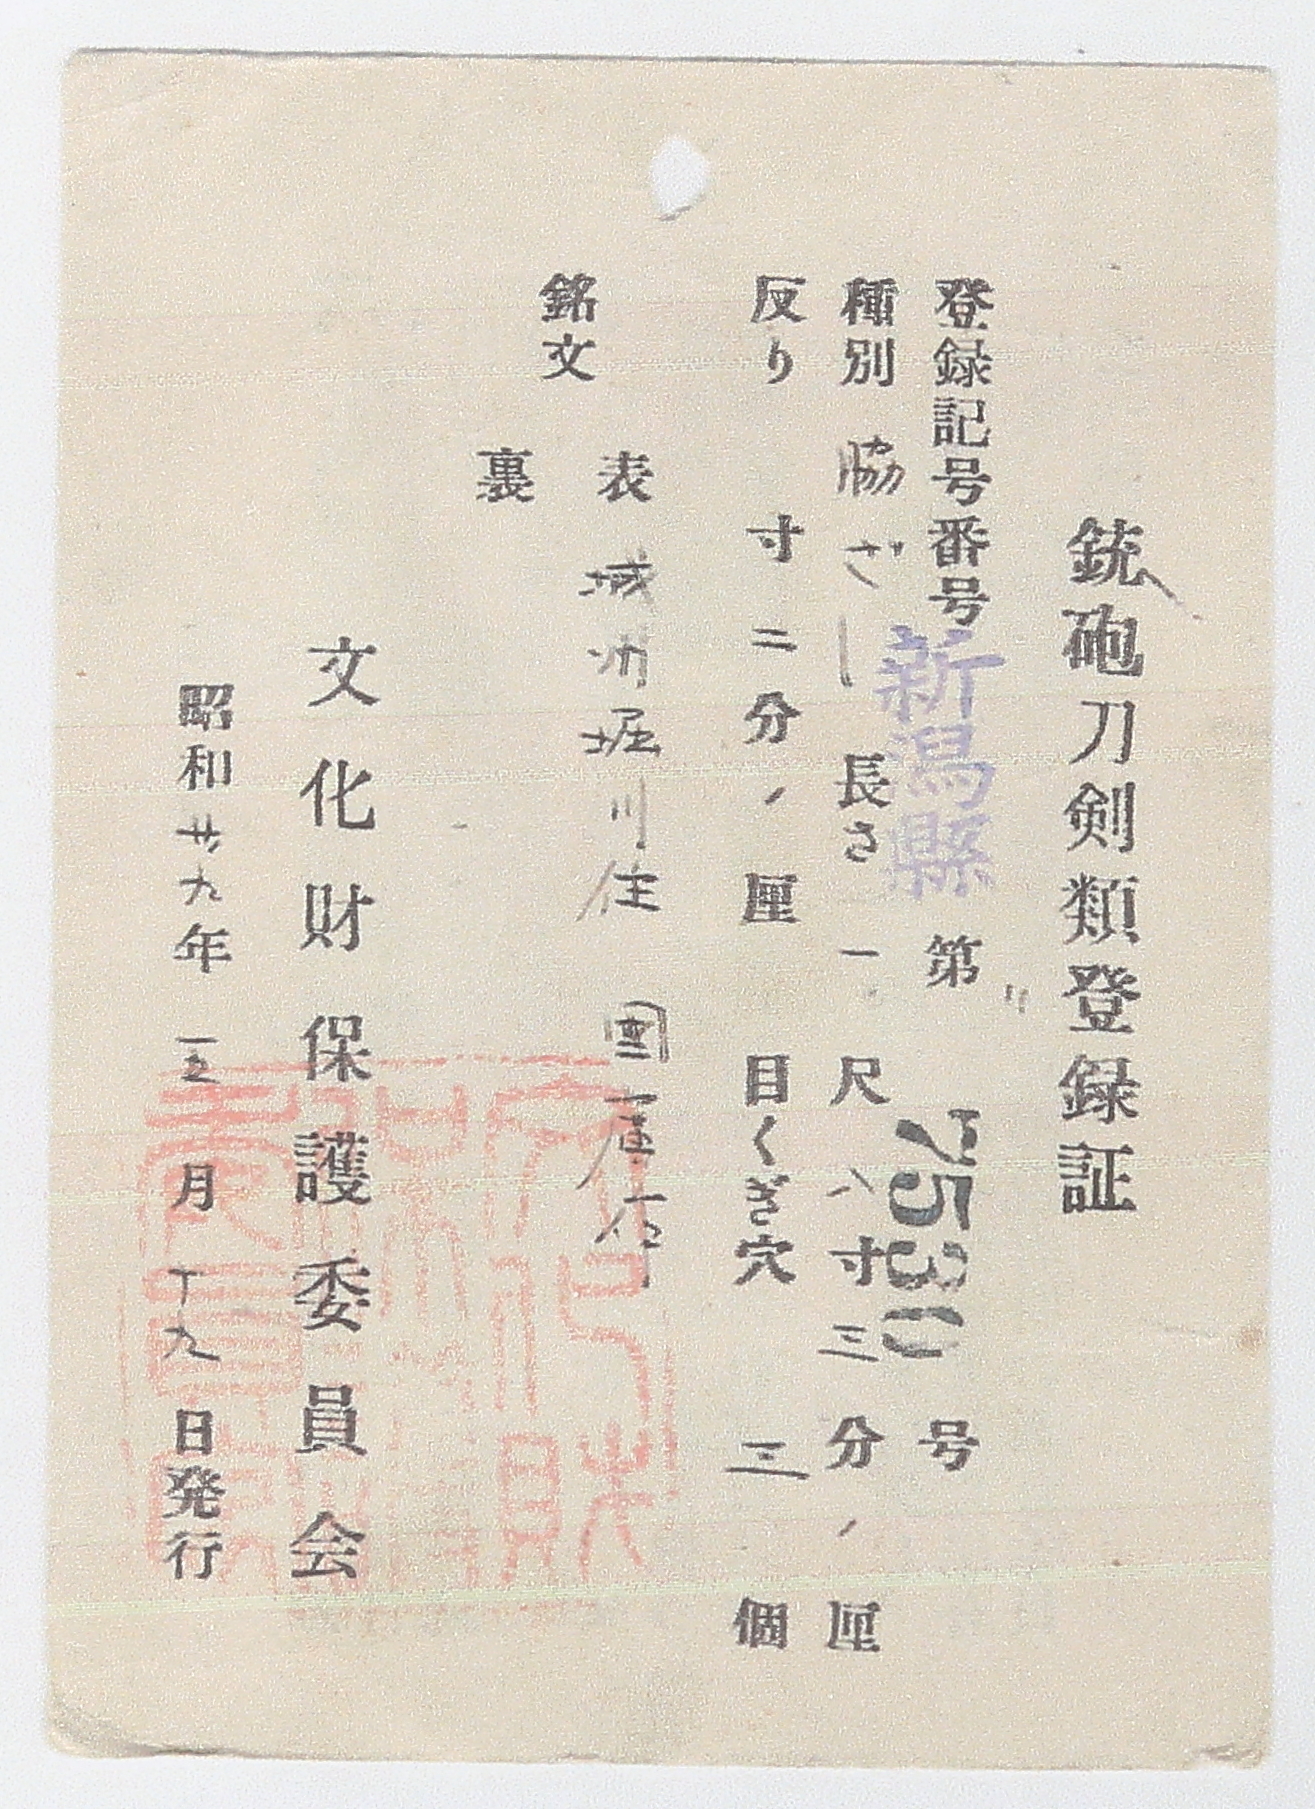 銃砲刀剣類登録証
登録記号番号 新潟縣 第 7530 号
種別 脇ざし 長さ 一尺八寸三分 厘
反り 寸二分 厘 目くぎ穴 三 個
銘文
表 城州堀川住 国
裏
文化財保護委員会
昭和廿九年 五月 十九日発行